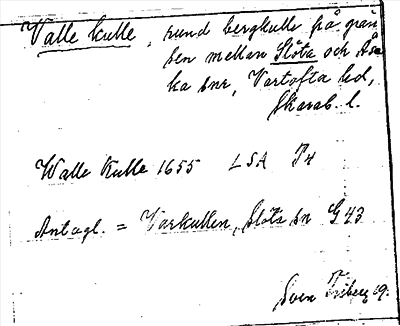 Valle kulle, rund bergkulle på grän
sen mellan Slöta och Åsa
ka snr, Vartofta hd,
Skarab. l.
Walle Kulle 1655 LSA P4
Antagl. = Varkullen, Slöta sn G 43
Sven Friberg 19.